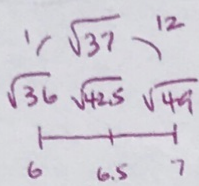 1 √37 12
√36 √42.5 √49
6 6.5 7